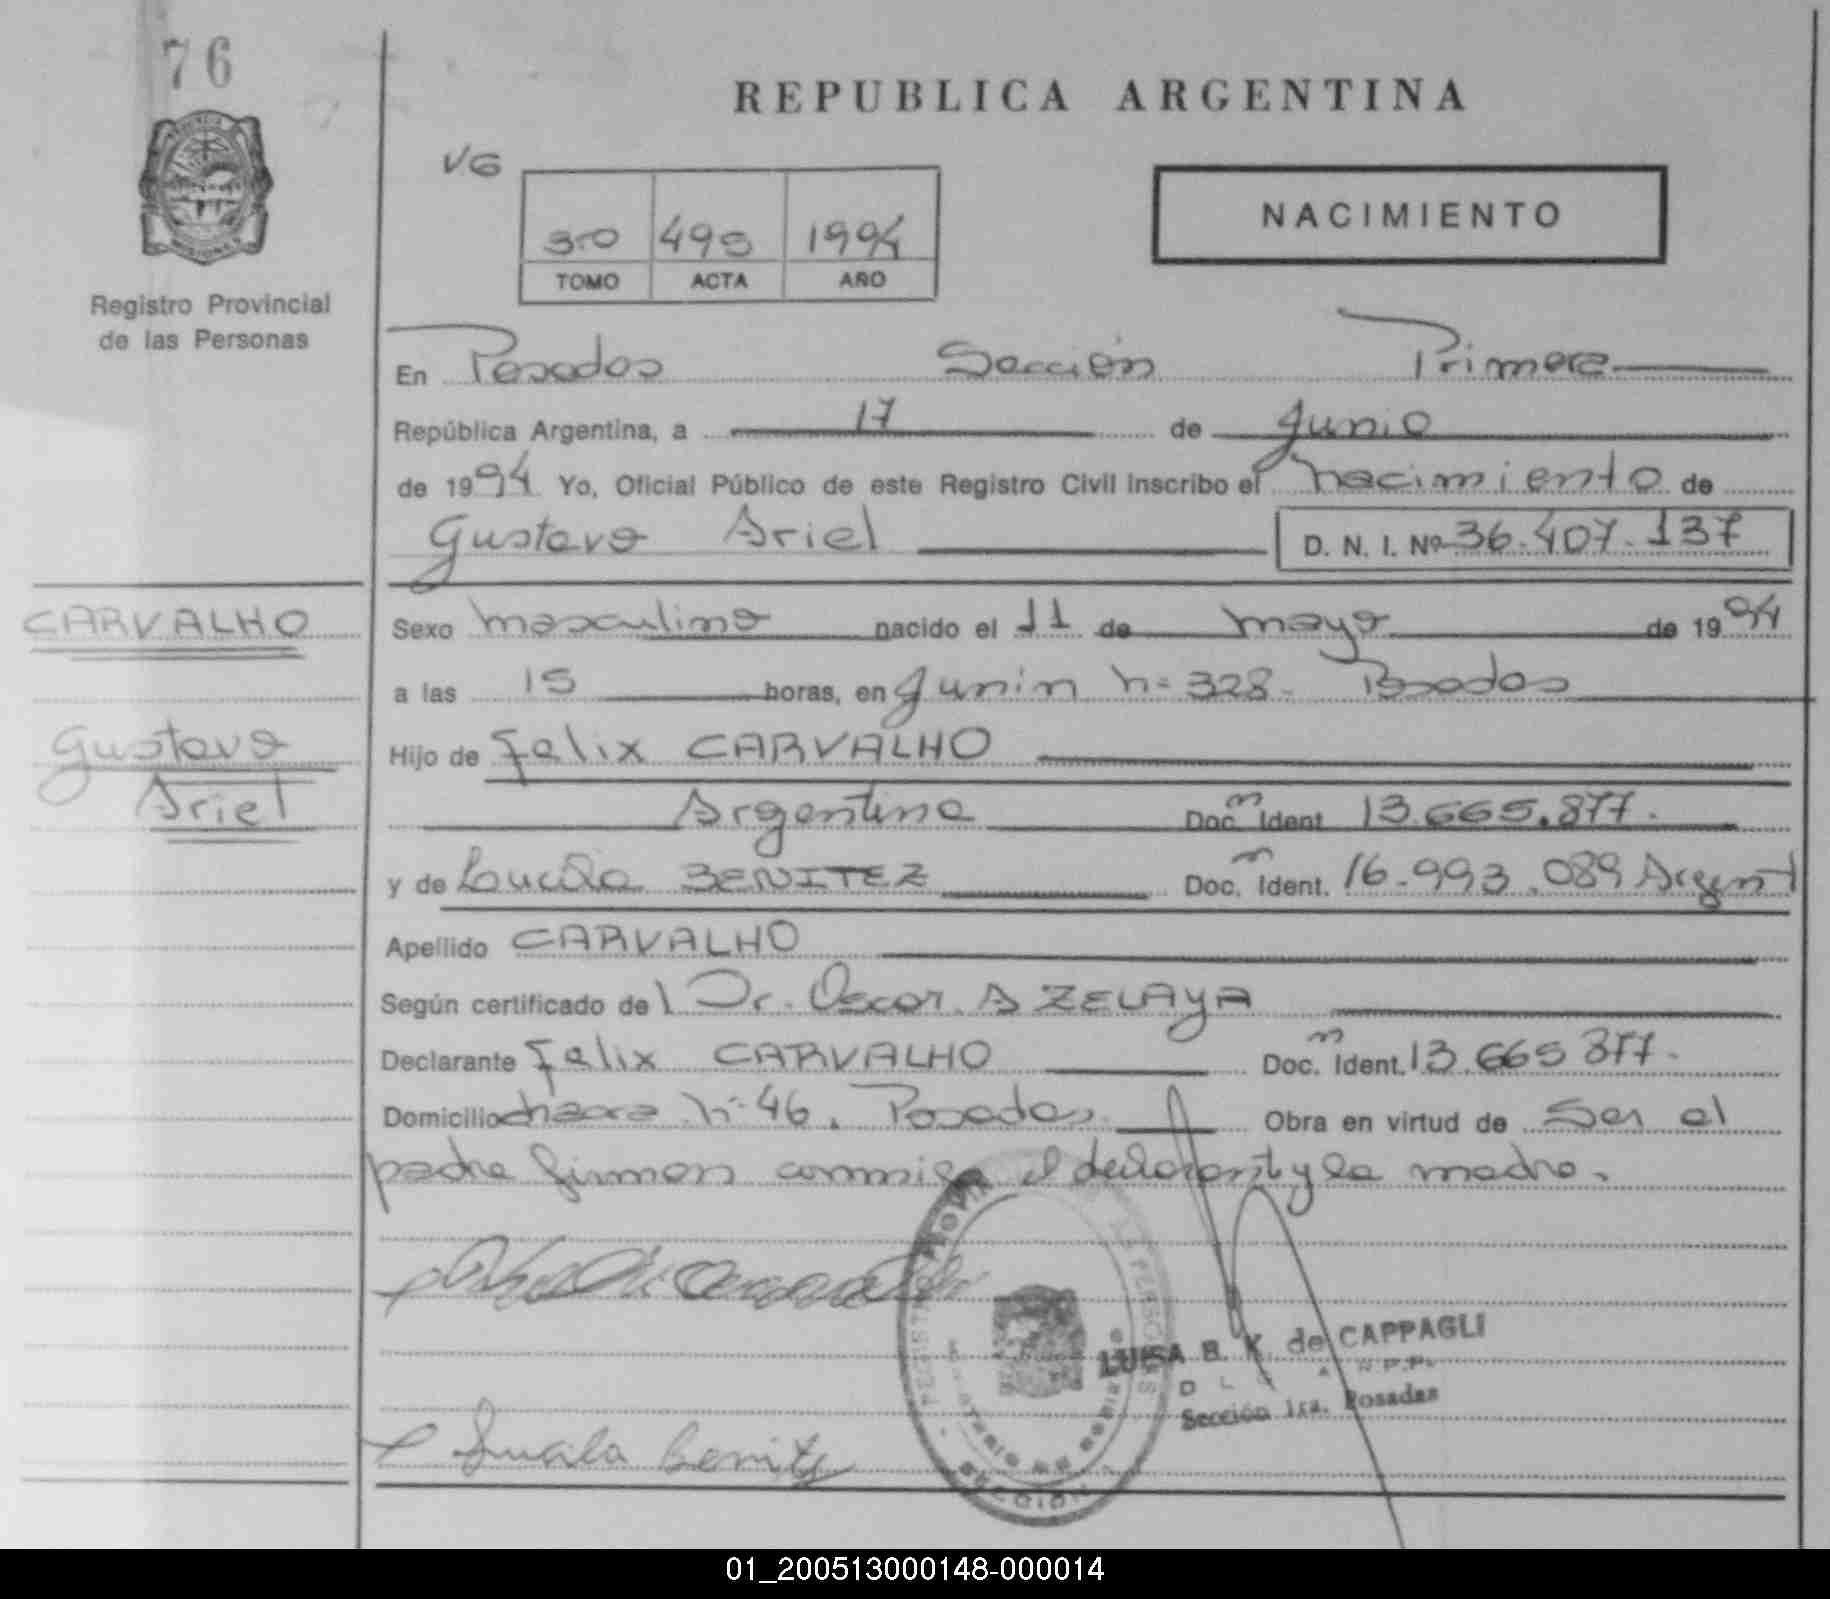 76
REPUBLICA ARGENTINA
VG
NACIMIENTO
30 495 1994
TOMO ACTA AÑO
Registro Provincial
de las Personas
En Posadas Sección Primera
República Argentina, a 17 de Junio
de 1994 Yo, Oficial Público de este Registro Civil inscribo el nacimiento de
Gustavo Ariel D. N. I. Nº 36.407.137
CARVALHO
Sexo masculino nacido el 11 de mayo de 1994
a las 15 horas, en Junin nº 328. Posadas
Gustavo
Ariel
Hijo de Felix CARVALHO
Argentina Doc. Ident. 13.665.877.
y de BENITEZ Doc. Ident. 16.993.089 Argent
Apellido CARVALHO
Según certificado del Dr. Oscar A ZELAYA
Declarante Felix CARVALHO Doc. Ident. 13.665 877.
Domicilio chacra nº 46. Posadas. Obra en virtud de Ser el
padre firman conmigo el declarant y la madre.
LUISA B. K. de CAPPAGLI
Sección 1ra. Posadas
SECCION
01_200513000148-000014